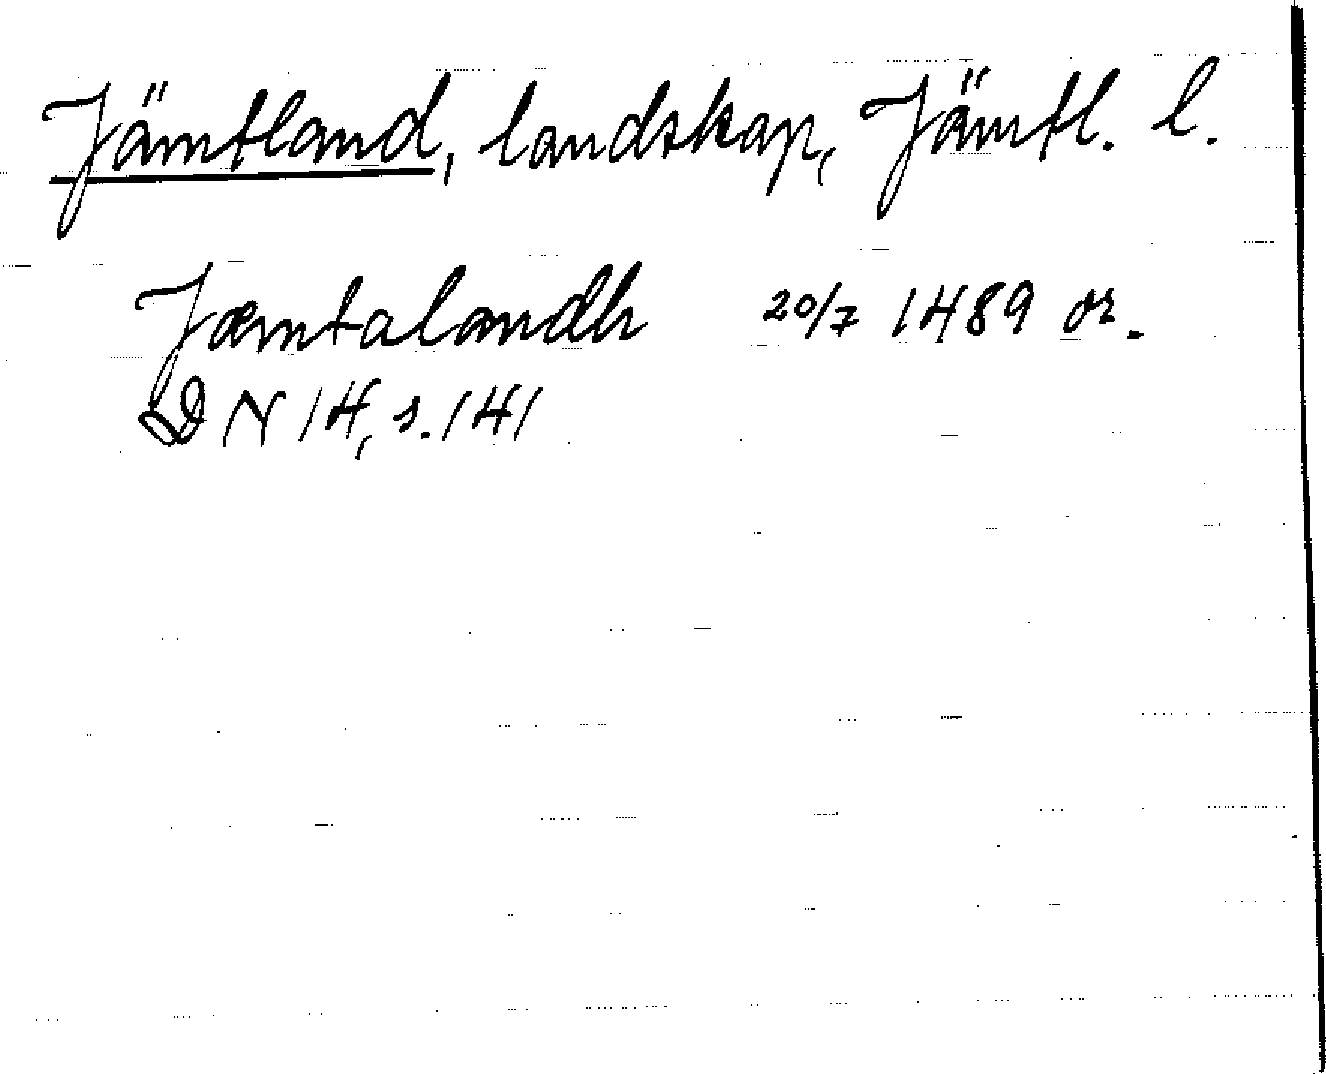 Jämtland, landskap, Jämtl. l.
Jæmtalandh 20/7 1489 or.
DN 14, s. 141